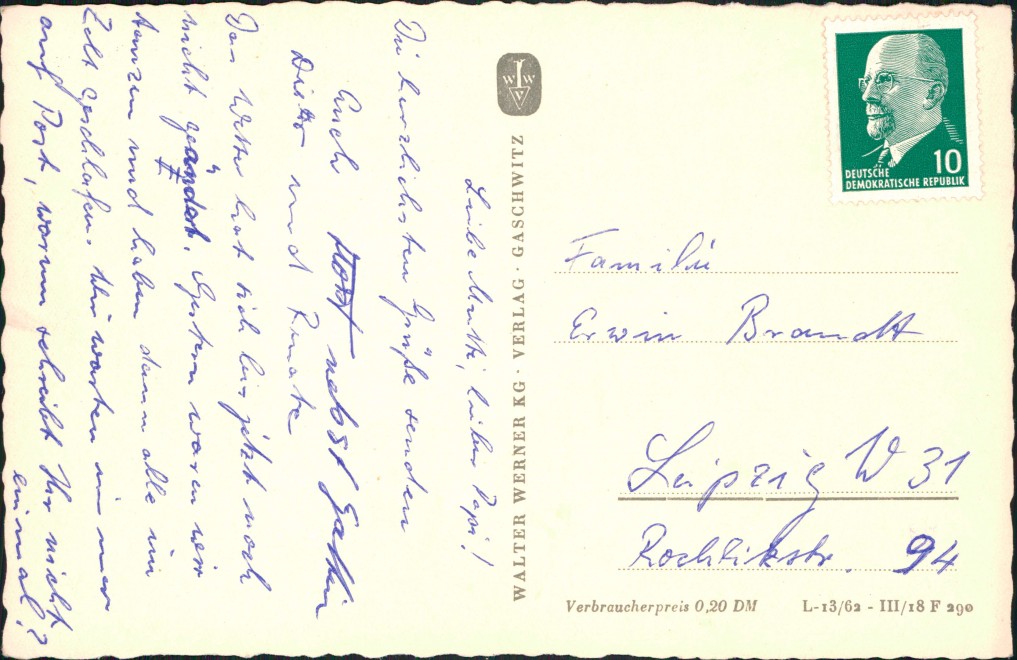 Liebe Mutti, lieber Papi!
Die herzlichsten Grüße senden
Euch Horst nebst Gattin
Dieter und Renate
Das Wetter hat sich bis jetzt noch
nicht geändert. Gestern waren wir
tanzen und haben dann alle im
Zelt geschlafen. Wir warten immer
auf Post, warum schreibt Ihr nicht
einmal?
WWV
WALTER WERNER KG · VERLAG · GASCHWITZ
10
DEUTSCHE
DEMOKRATISCHE REPUBLIK
Familie
Erwin Brandt
Leipzig W 31
Rochlitzstr. 94
Verbraucherpreis 0,20 DM L-13/62 - III/18 F 290